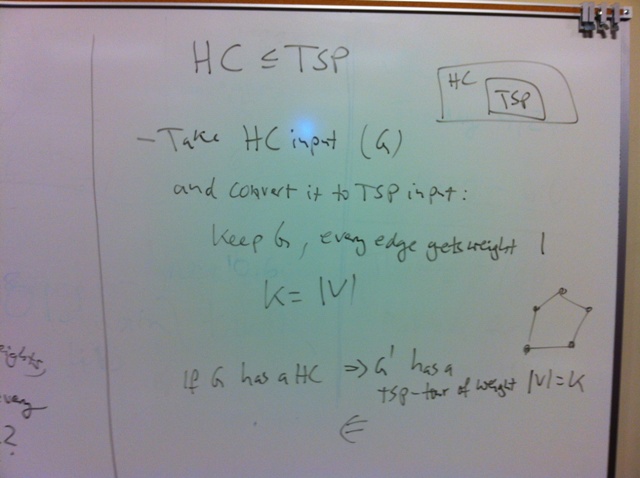 HC ≤ TSP
HC
TSP
- Take HC input (G)
and convert it to TSP input:
Keep G, every edge gets weight 1
K = |V|
If G has a HC ⇒ G' has a
TSP-tour of weight |V| = K
⇐
eights,
every
?